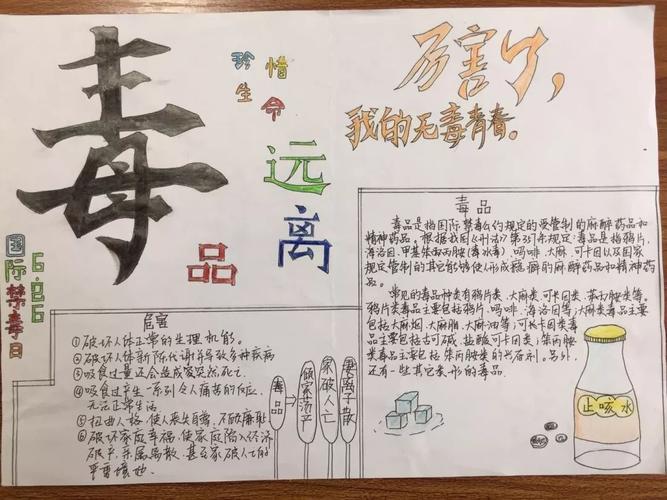 毒
品
珍惜
生命
远离
厉害了,
我的无毒青春。
国际禁毒日
6.26
毒品
毒品是指国际禁毒公约规定的受管制的麻醉药品和
精神药品。根据我国《刑法》第357条规定:毒品是指鸦片,
海洛因,甲基苯丙胺(毒冰毒)、吗啡、大麻、可卡因以及国家
规定管制的其它能够使人形成瘾癖的麻醉药品和精神药
品。
常见的毒品种类有鸦片类、大麻类、可卡因类、苯丙胺类等。
鸦片类毒品主要包括鸦片、吗啡、海洛因等;大麻类毒品主要
包括大麻烟、大麻脂、大麻油等;可卡因类毒
品主要包括古可碱、盐酸可卡因类、苯丙胺
类毒品主要包括苯丙胺类的兴奋剂。另外,
还有一些其它类形的毒品。
止咳水
危害
①破坏人体正常的生理机能。
②破坏人体新陈代谢并导致多种疾病
③吸食过量还会造成突然死亡.
④吸食过产生一系列令人痛苦的反应,
无法正常生活
⑤扭曲人格,使人丧失自尊,不顾廉耻
⑥破坏家庭幸福,使家庭陷入经济
破产、亲属离散、甚至家破人亡的
严重境地.
毒品
倾家荡产
家破人亡
妻离子散